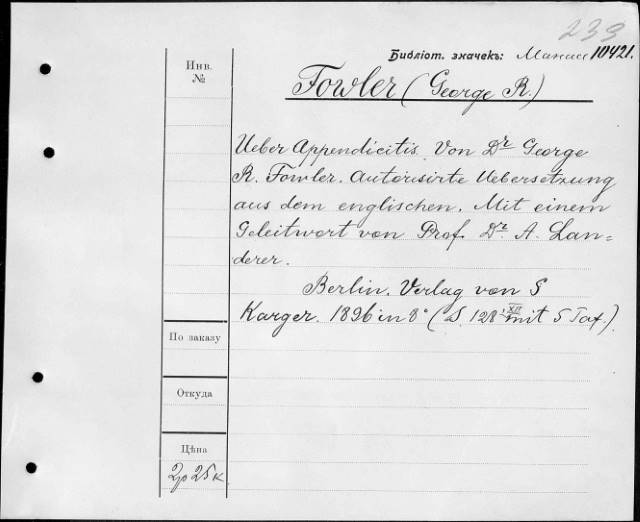 233
Библіот. значекъ: 10421.
Инв.
№
Fowler (George R.)
Ueber Appendicitis. Von Dr George
R. Fowler. Autorisirte Uebersetzung
aus dem englischen. Mit einem
Geleitwort von Prof. Dr. A. Lan=
derer.
Berlin. Verlag von S
Karger. 1896 in 8° (S. 128 + XII mit 5 Taf.)
По заказу
Откуда
Цѣна
2р 25к